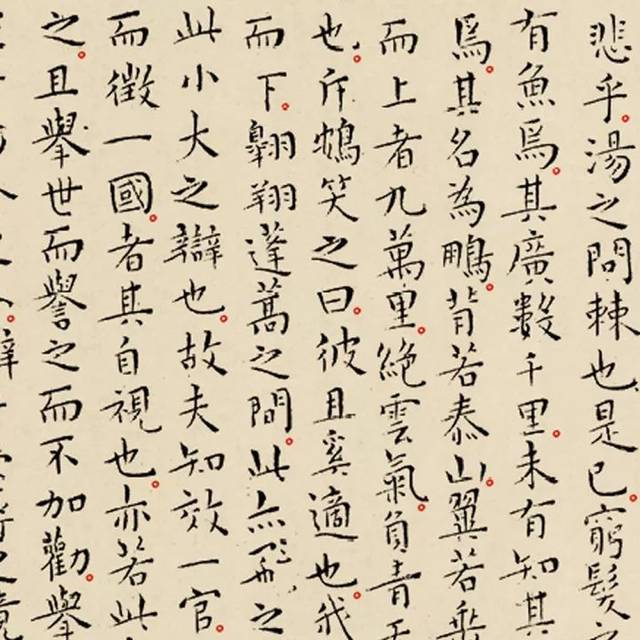 悲乎湯之問棘也是已窮髮之
有魚焉其廣數千里未有知其
焉其名為鵬背若泰山翼若垂
而上者九萬里絕雲氣負青天
也斥鴳笑之曰彼且奚適也我
而下翱翔蓬蒿之間此亦飛之
此小大之辯也故夫知效一官
而徵一國者其自視也亦若此
之且舉世而譽之而不加勸舉